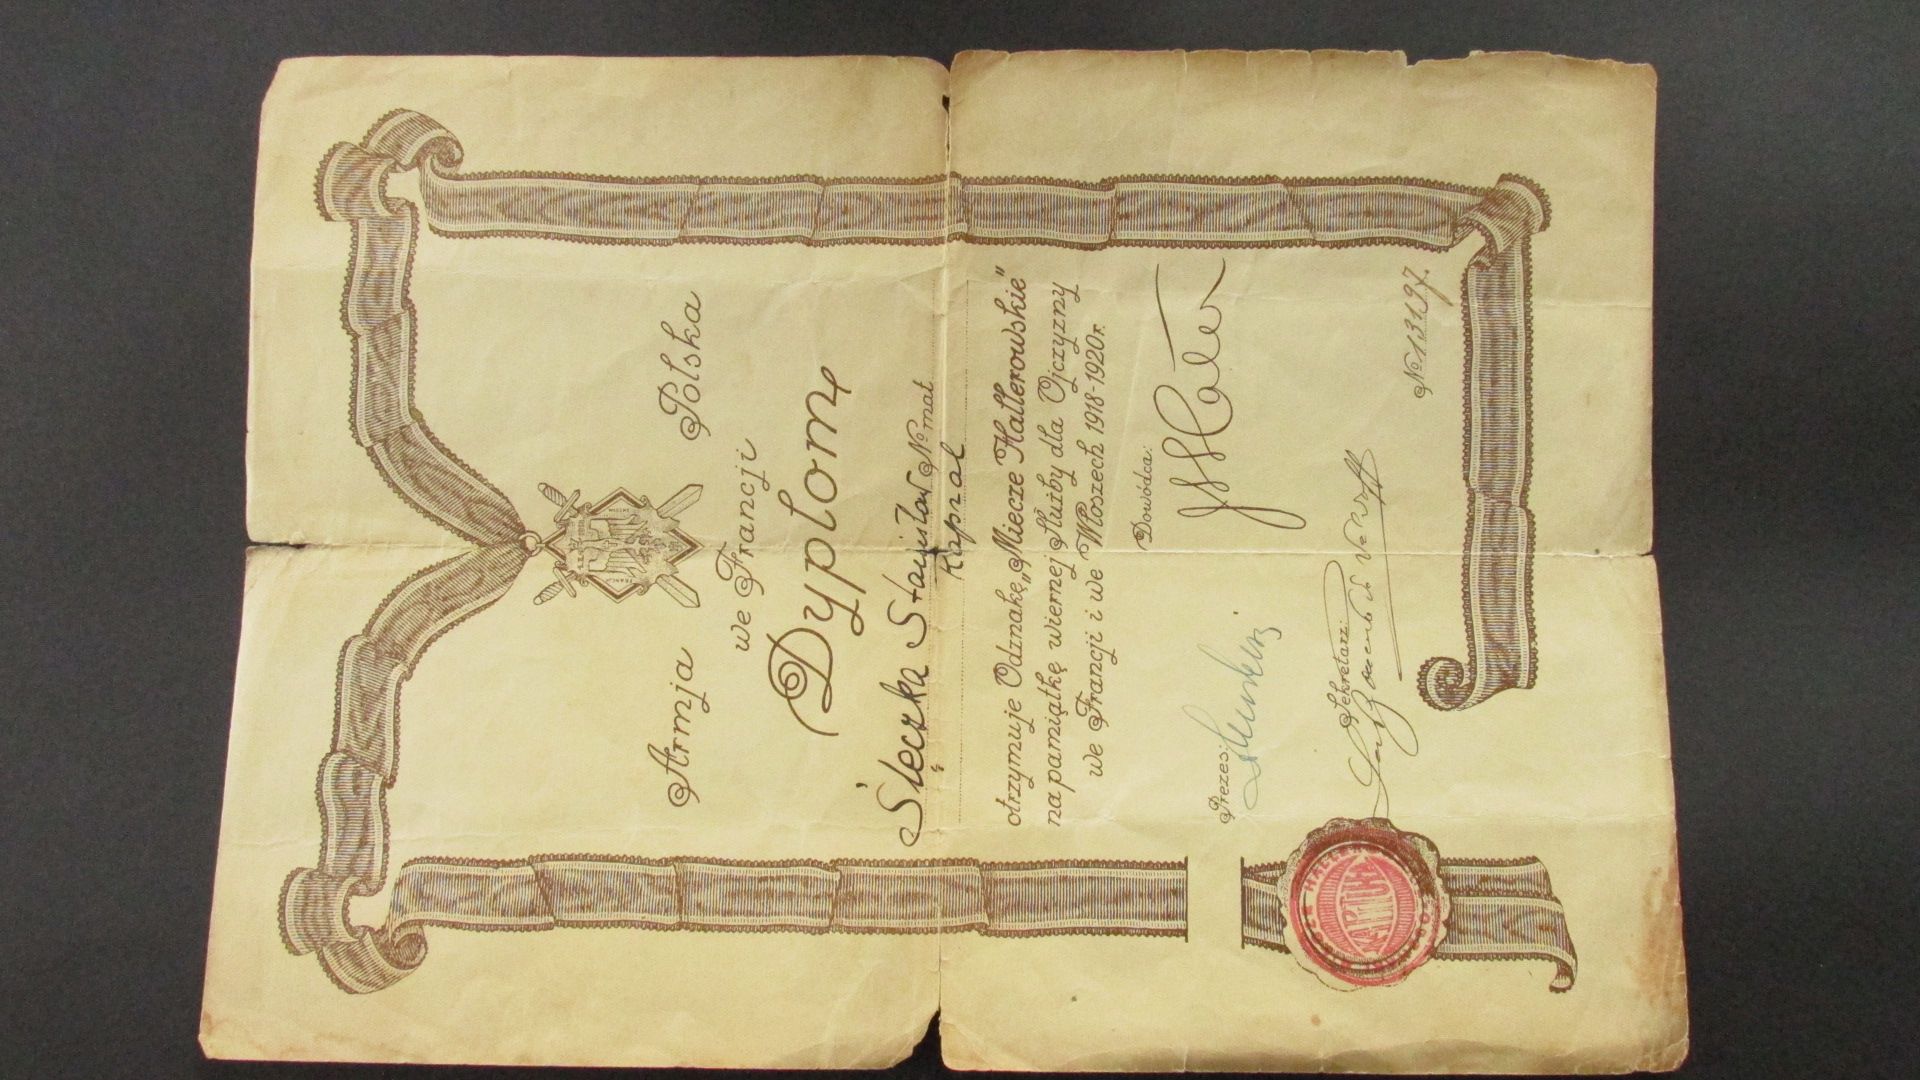 Armja Polska
we Francji
Dyplom
Śleczka Stanisław № mat
Kapral
otrzymuje Odznakę „Miecze Hallerowskie”
na pamiątkę wiernej służby dla Ojczyzny
we Francji i we Włoszech 1918-1920r.
Dowódca:
JHaller
Prezes:
Sekretarz:
№ 13197.